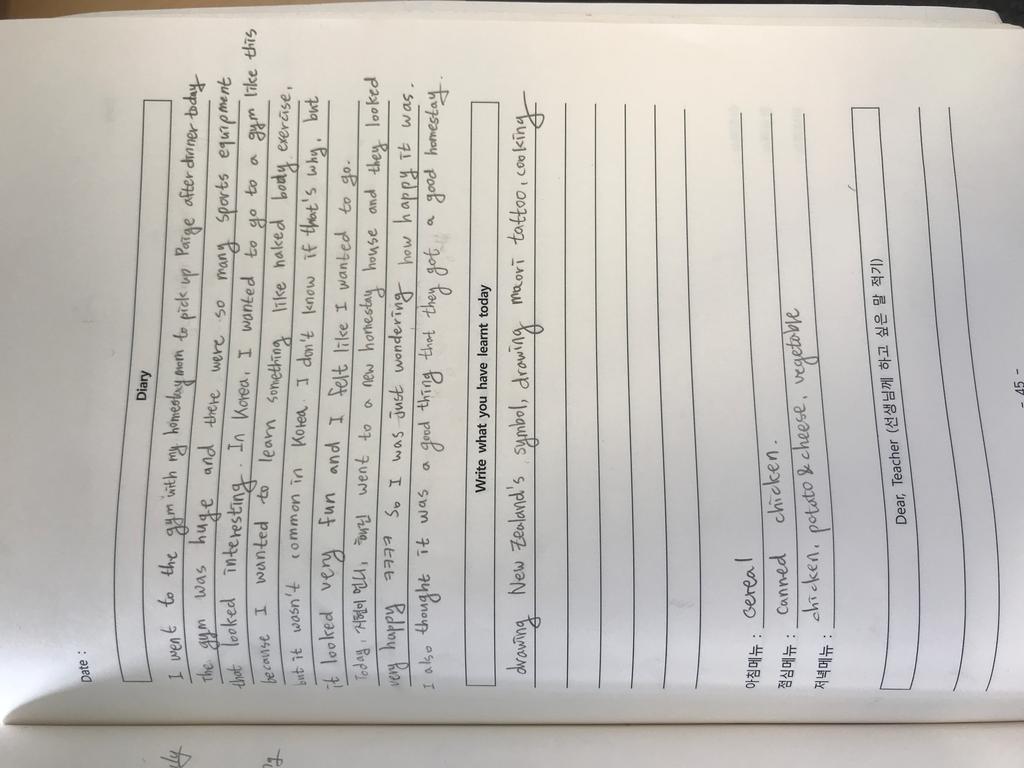 Date :
Diary
I went to the gym with my homestay mom to pick up Paige after dinner today
The gym was huge and there were so many sports equipment
that looked interesting. In Korea, I wanted to go to a gym like this
because I wanted to learn something like naked body exercise,
but it wasn't common in Korea. I don't know if that's why, but
it looked very fun and I felt like I wanted to go.
Today, went to a new homestay house and they looked
very happy ㅋㅋㅋㅋ So I was just wondering how happy it was.
I also thought it was a good thing that they got a good homestay.
Write what you have learnt today
drawing New Zealand's symbol, drawing maori tattoo, cooking
아침메뉴 : cereal
점심메뉴 : canned chicken.
저녁메뉴 : chicken, potato & cheese, vegetable
Dear, Teacher (선생님께 하고 싶은 말 적기)
- 45 -